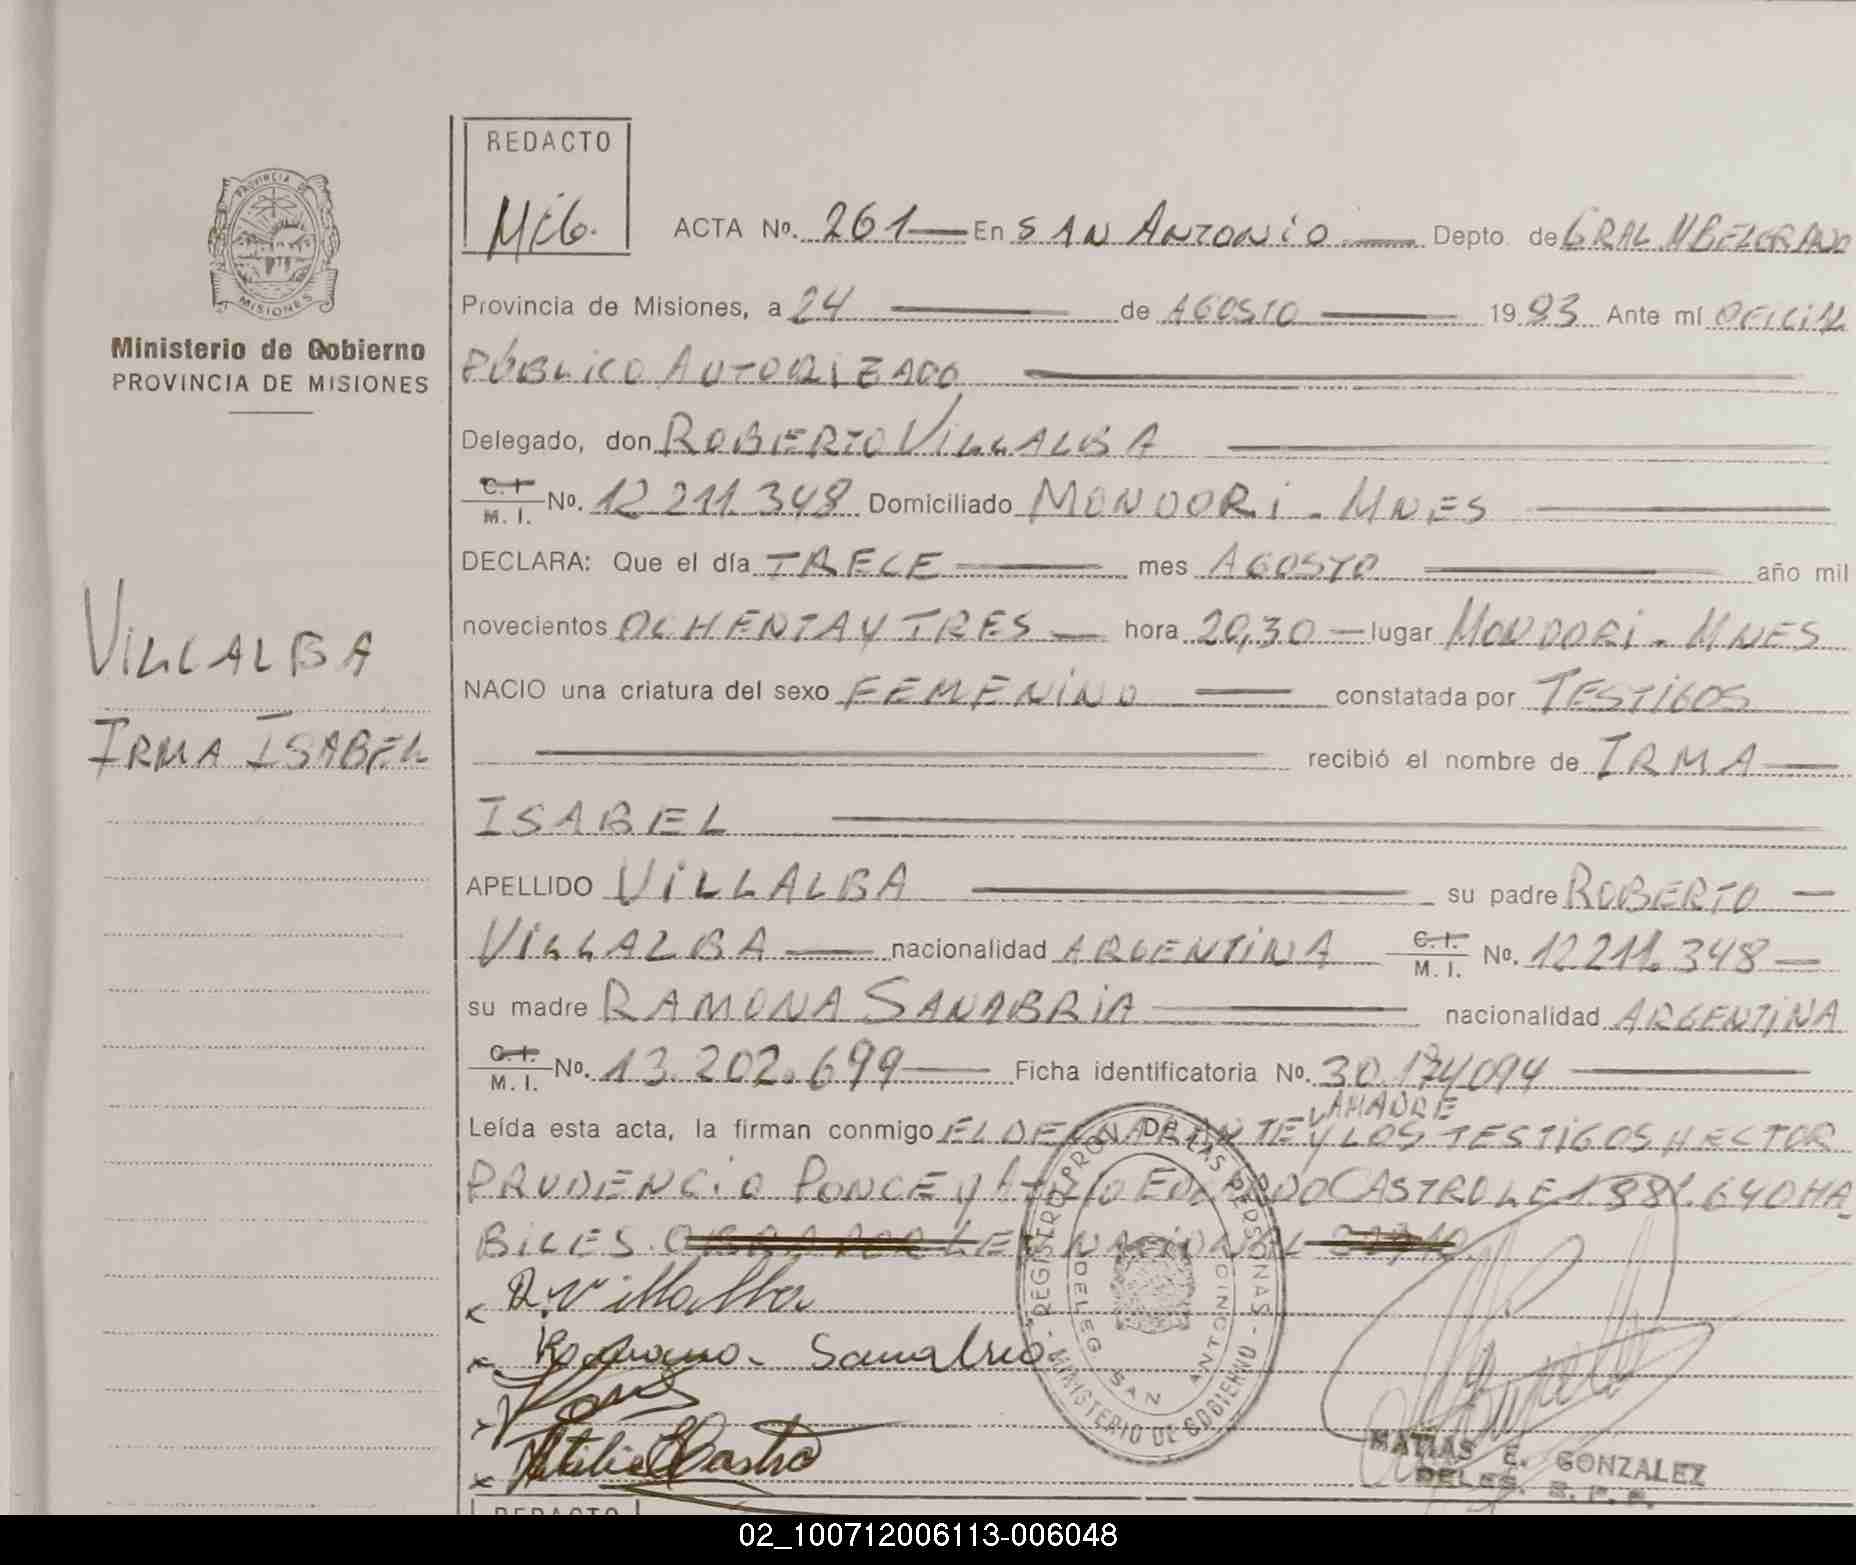 REDACTO
MEG.
ACTA No. 261 En SAN ANTONIO Depto. de GRAL M BELGRANO
PROVINCIA DE
MISIONES
Provincia de Misiones, a 24 de AGOSTO 1983 Ante mí OFICIAL
Ministerio de Gobierno
PROVINCIA DE MISIONES
PÚBLICO AUTORIZADO
Delegado, don ROBERTO VILLALBA
C. I. M. I. No. 12 211.348 Domiciliado MONDORI - MNES
DECLARA: Que el día TRECE mes AGOSTO año mil
novecientos OCHENTA Y TRES hora 20,30 lugar MONDORI - MNES
VILLALBA
IRMA ISABEL
NACIO una criatura del sexo FEMENINO constatada por TESTIGOS
recibió el nombre de IRMA
ISABEL
APELLIDO VILLALBA su padre ROBERTO
VILLALBA nacionalidad ARGENTINA C. I. M. I. No. 12 211.348
su madre RAMONA SANABRIA nacionalidad ARGENTINA
C. I. M. I. No. 13.202.699 Ficha identificatoria No. 30.174094
LA MADRE
Leída esta acta, la firman conmigo EL DECLARANTE Y LOS TESTIGOS HECTOR
PRUDENCIO PONCE y ATILIO EDUARDO CASTRO LE 1.881.640 HA
BILES. LEY NACIONAL
R. Villalba
Ramona Sanabria
Atilio E Castro
REGISTRO PROV. DE LAS PERSONAS - MINISTERIO DE GOBIERNO
DELEG. SAN ANTONIO
MATIAS E. GONZALEZ
DELEG. R. P. P.
REDACTO
02_100712006113-006048